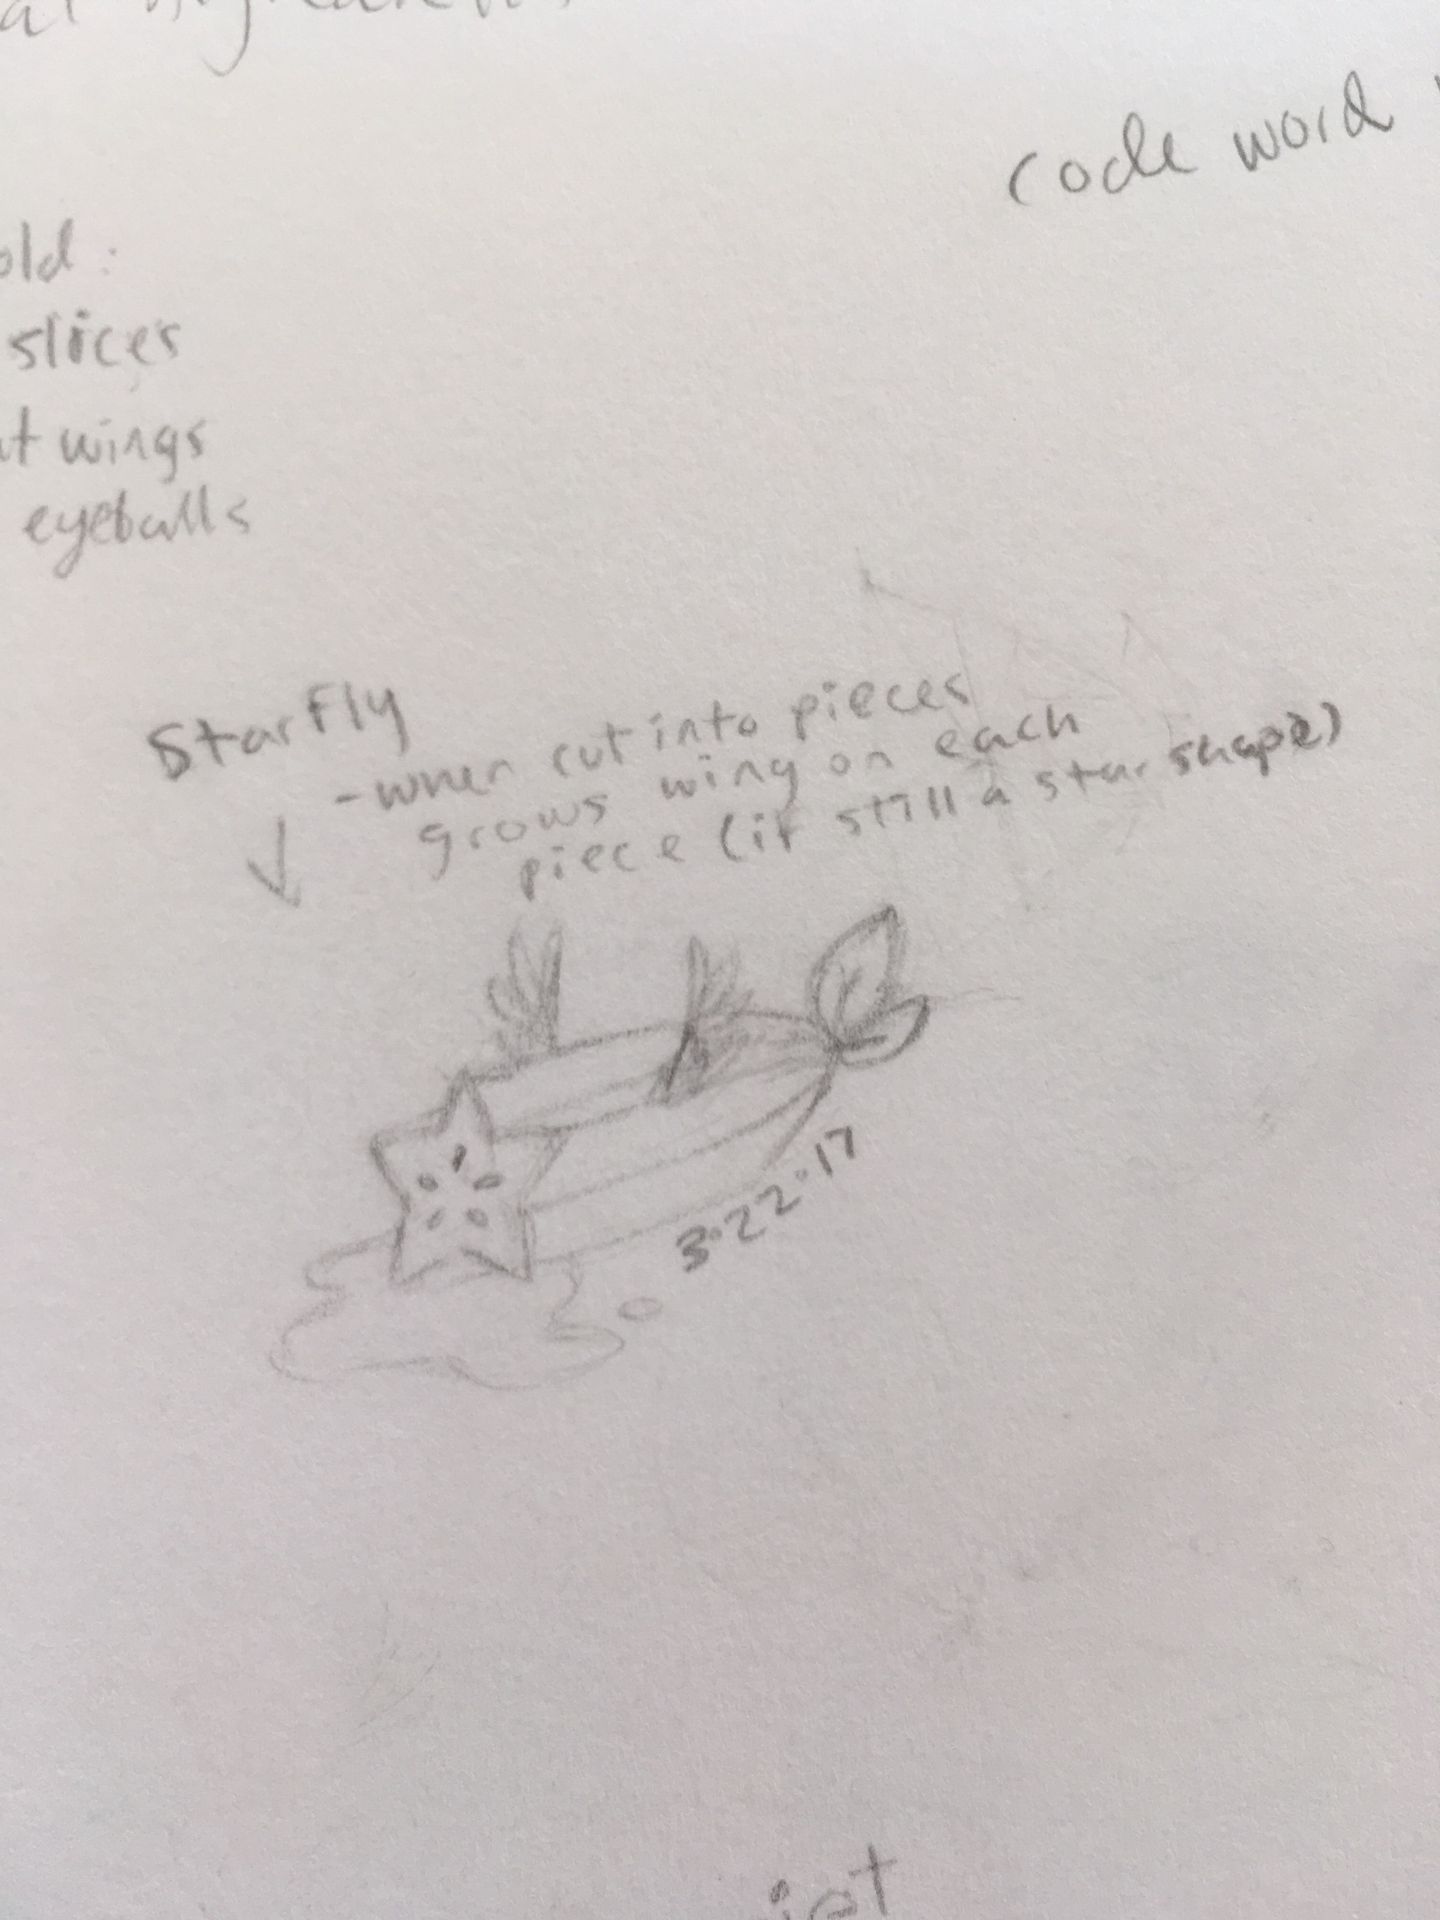 code word
old:
slices
wings
eyeballs
Starfly
-when cut into pieces
grows wing on each
piece (if still a star shape)
3·22·17